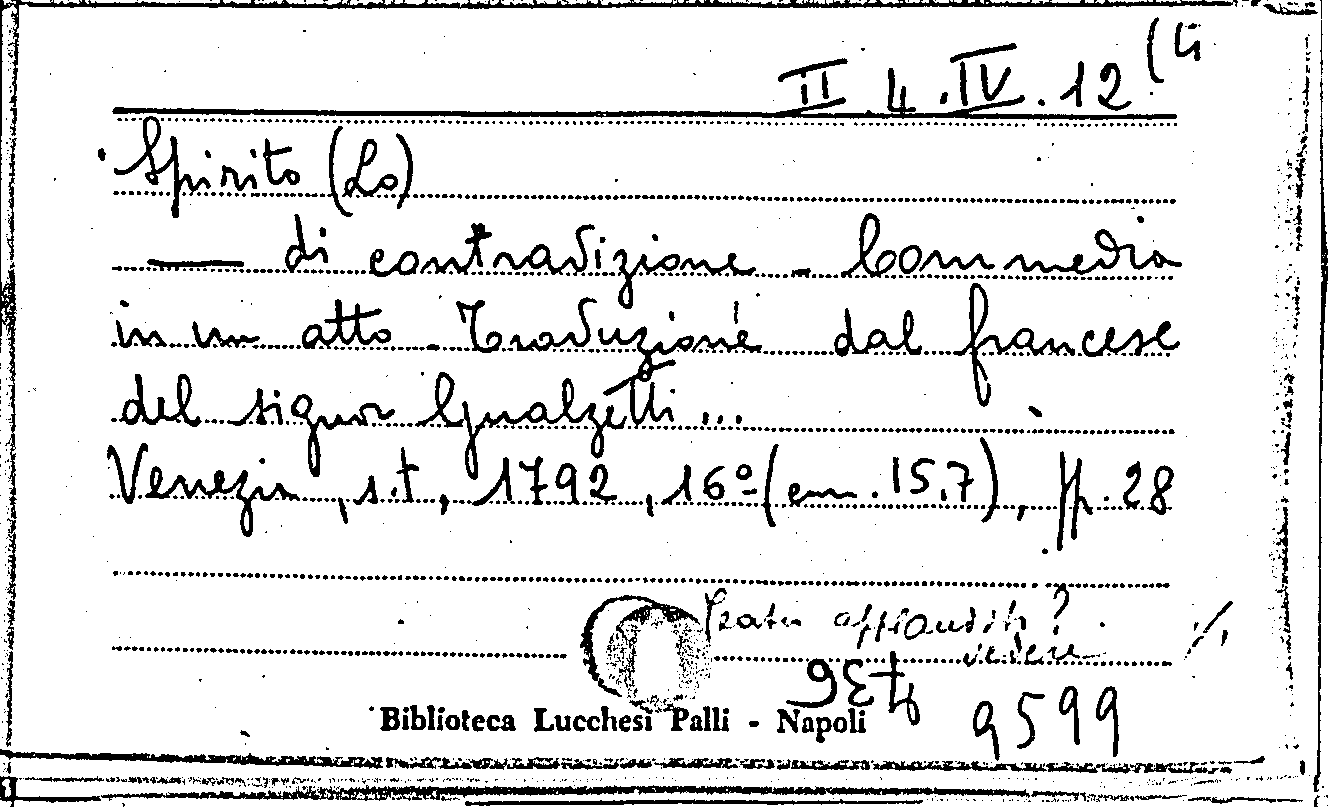 II.4.IV.12(4
Spirito (Lo)
— di contradizione - Commedia
in un atto - Traduzione dal francese
del signor Gualzetti...
Venezia, s.t, 1792, 16º (cm. 15,7), pp. 28
Teatro applaudito?
vedere
9599
Biblioteca Lucchesi Palli - Napoli